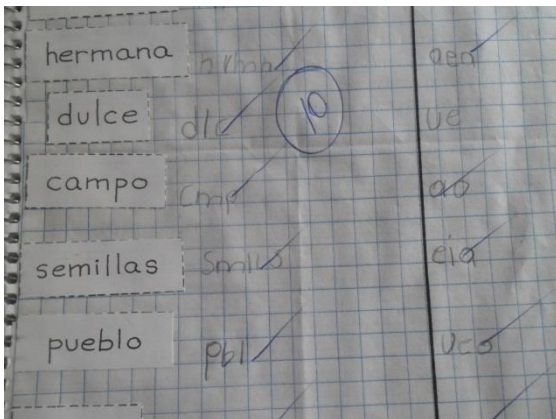 hermana hrmn aea
dulce dlc 10 ue
campo cmp ao
semillas smlls eia
pueblo pbl ueo